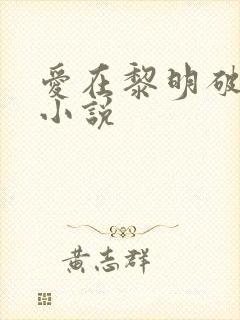 愛在黎明破
小說
黃志群